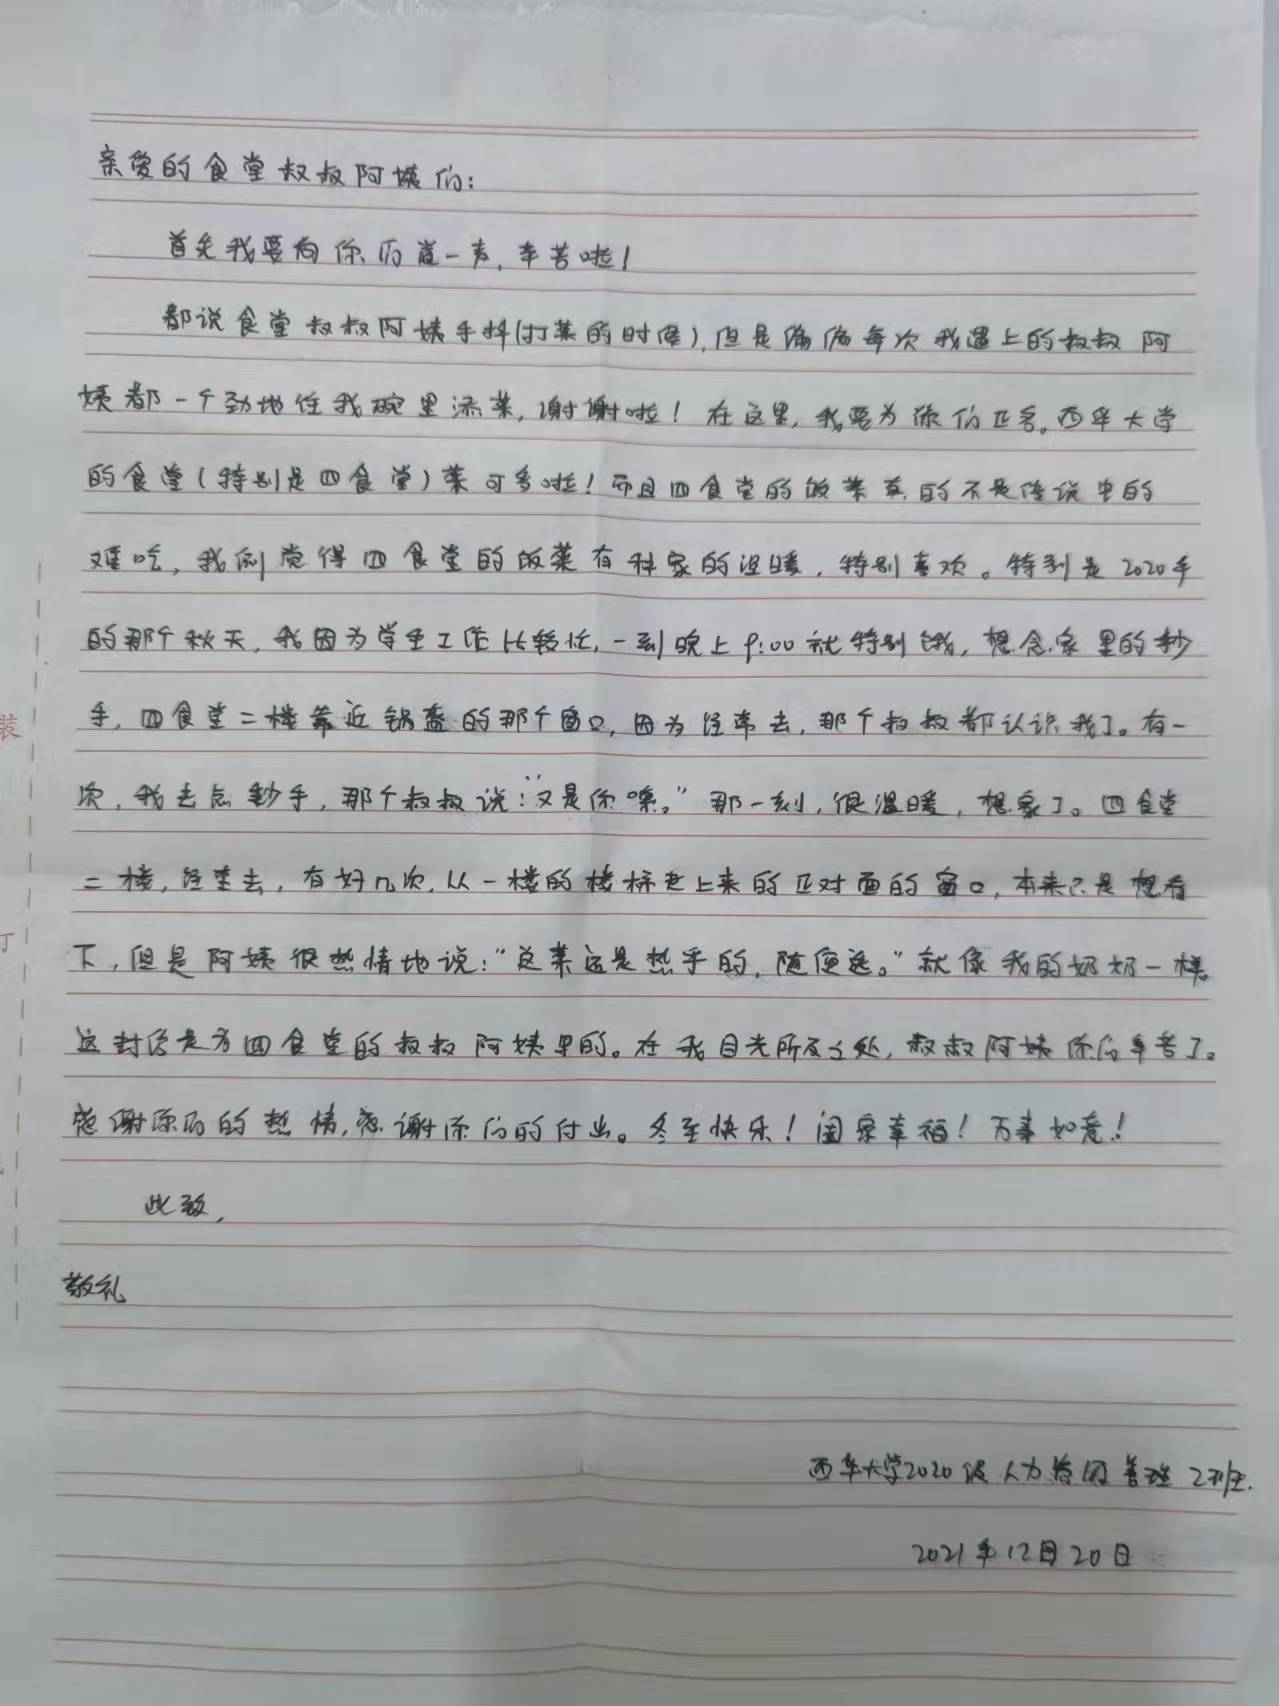 亲爱的食堂叔叔阿姨们：
首先我要向你们道一声，辛苦啦！
都说食堂叔叔阿姨手抖(打菜的时候)，但是偏偏每次我遇上的叔叔阿
姨都一个劲地往我碗里添菜，谢谢啦！在这里，我要为你们正名。西华大学
的食堂(特别是四食堂)菜可多啦！而且四食堂的饭菜真的不是传说中的
难吃，我倒觉得四食堂的饭菜有种家的温暖，特别喜欢。特别是2020年
的那个秋天，我因为学生工作比较忙，一到晚上9:00就特别饿，想念家里的抄
手，四食堂二楼靠近锅盔的那个窗口，因为经常去，那个叔叔都认识我了。有一
次，我去点抄手，那个叔叔说："又是你嗦。"那一刻，很温暖，想家了。四食堂
二楼，经常去，有好几次，从一楼的楼梯走上来的正对面的窗口，本来只是想看
下，但是阿姨很热情地说："这菜还是热乎的，随便选。"就像我的奶奶一样。
这封信是为四食堂的叔叔阿姨写的。在我目光所及之处，叔叔阿姨你们辛苦了。
感谢你们的热情，感谢你们的付出。冬至快乐！阖家幸福！万事如意！
此致，
敬礼
西华大学2020级人力资源管理2班.
2021年12月20日
装
订